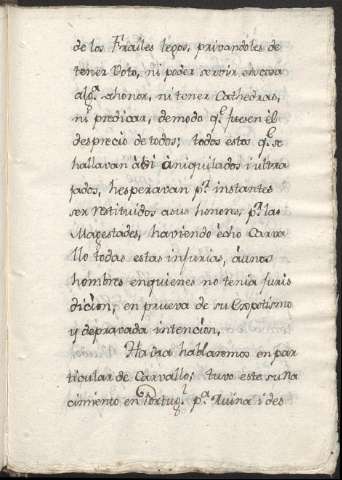 de los Frailes legos, privandoles de
tener Voto, ni poder servir en cosa
alg.ª ahonor, ni tener Cathedras,
ni predicar, demodo q.ᵉ fuesen èl
desprecio de todos; todos estos q.ᵉ se
hallavan àsi àniquilados i ultra
jados, hesperavan p.ʳ instantes
ser restituidos asus honores, p.ʳ las
Magestades, haviendo echo Carva
llo todas estas infurias, àunos
hombres enquienes no tenia furis
dicion, en prueva de su Espotismo
y depravada intencion,
Haòra hablaremos en par
ticular de Carvallo; tuvo este su na
cimiento en Portug.ˡ p.ª Ruina i des